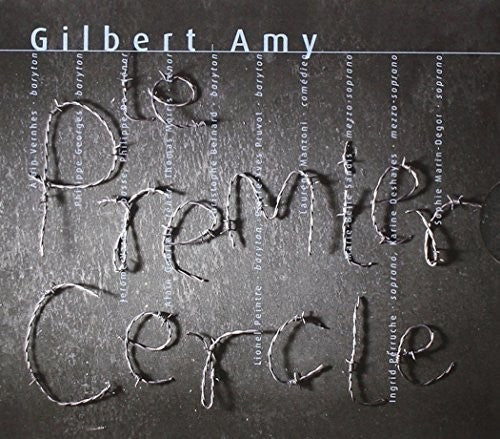 Gilbert Amy
Le
Premier
Cercle
Vernhes baryton
Philippe Georges baryton
Jérôme basse Philippe ténor
Alain Thomas
Christophe Bernard baryton
Lionel Peintre baryton, Pruvot baryton
Laurent Manzoni comédien
mezzo-soprano
Ingrid Perruche · soprano, Karine Deshayes · mezzo-soprano
Sophie Marin-Degor · soprano